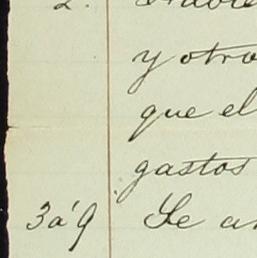 2.
y otro
que el
gastos
3a´9 Se a